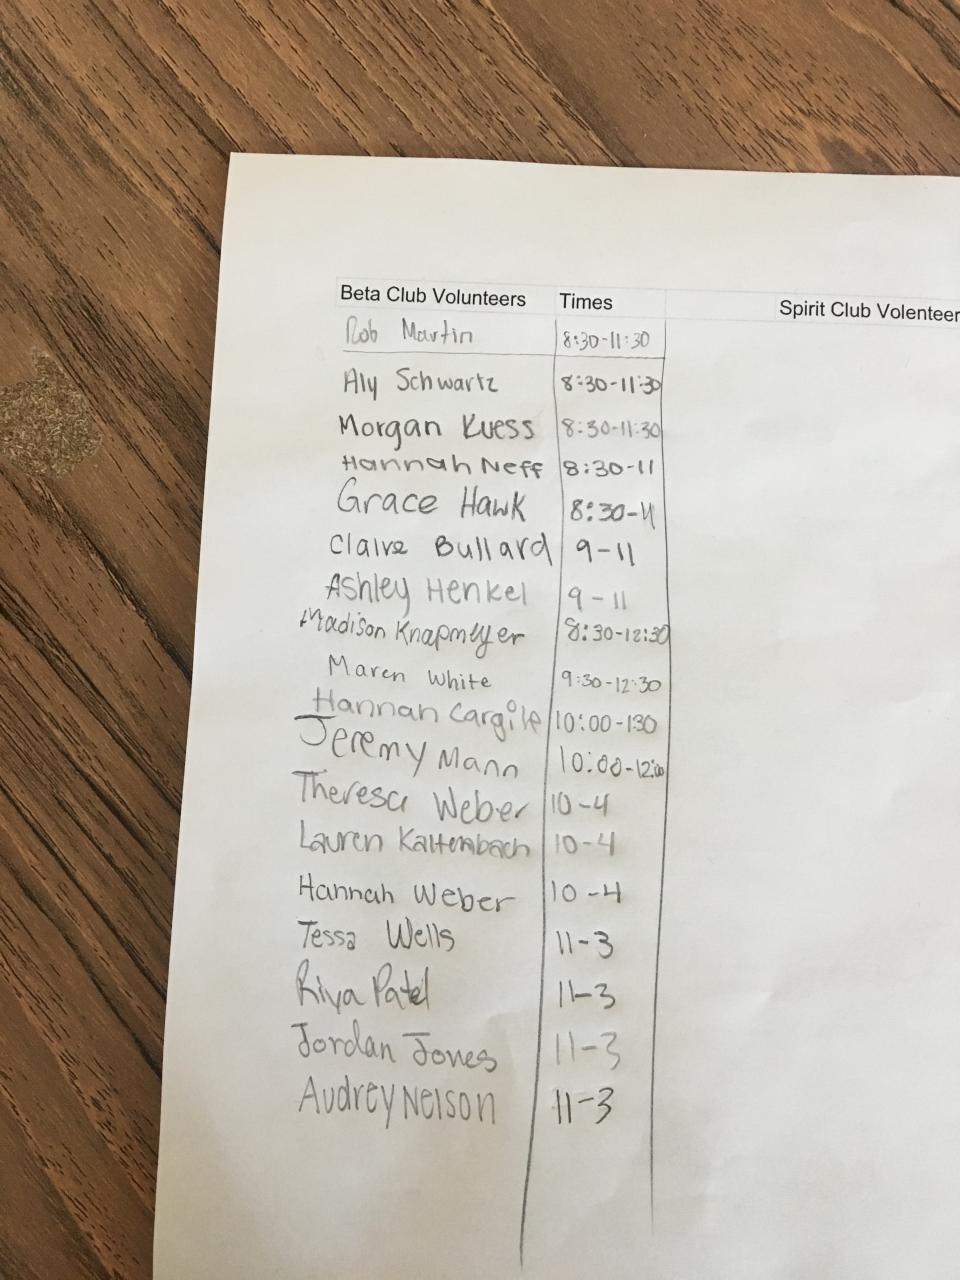 Beta Club Volunteers Times Spirit Club Volenteer
Rob Martin 8:30-11:30
Aly Schwartz 8:30-11:30
Morgan Kuess 8:30-11:30
Hannah Neff 8:30-11
Grace Hawk 8:30-4
Claire Bullard 9-11
Ashley Henkel 9-11
Madison Knapmeyer 8:30-12:30
Maren White 9:30-12:30
Hannah Cargile 10:00-130
Jeremy Mann 10:00-12:00
Theresa Weber 10-4
Lauren Kaltenbach 10-4
Hannah Weber 10-4
Tessa Wells 11-3
Riya Patel 11-3
Jordan Jones 11-3
Audrey Nelson 11-3